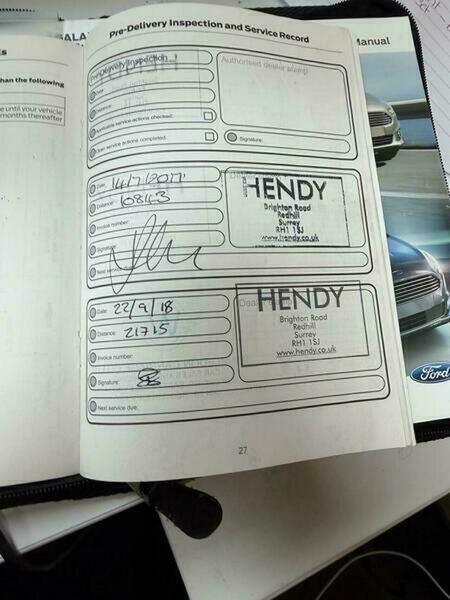 Pre-Delivery Inspection and Service Record
Pre-Delivery Inspection
Authorised dealer stamp
Date:
Distance:
Applicable service actions checked:
Open service actions completed:
Signature:
Date: 14/7/2017
Distance: 10843
Invoice number:
Signature:
Next service
HENDY
Brighton Road
Redhill
Surrey
RH1 1SJ
www.hendy.co.uk
Date: 22/9/18
Distance: 21715
Invoice number:
Signature:
Next service due:
HENDY
Brighton Road
Redhill
Surrey
RH1 1SJ
www.hendy.co.uk
27
than the following
until your vehicle
months thereafter
GALA
Manual
Ford